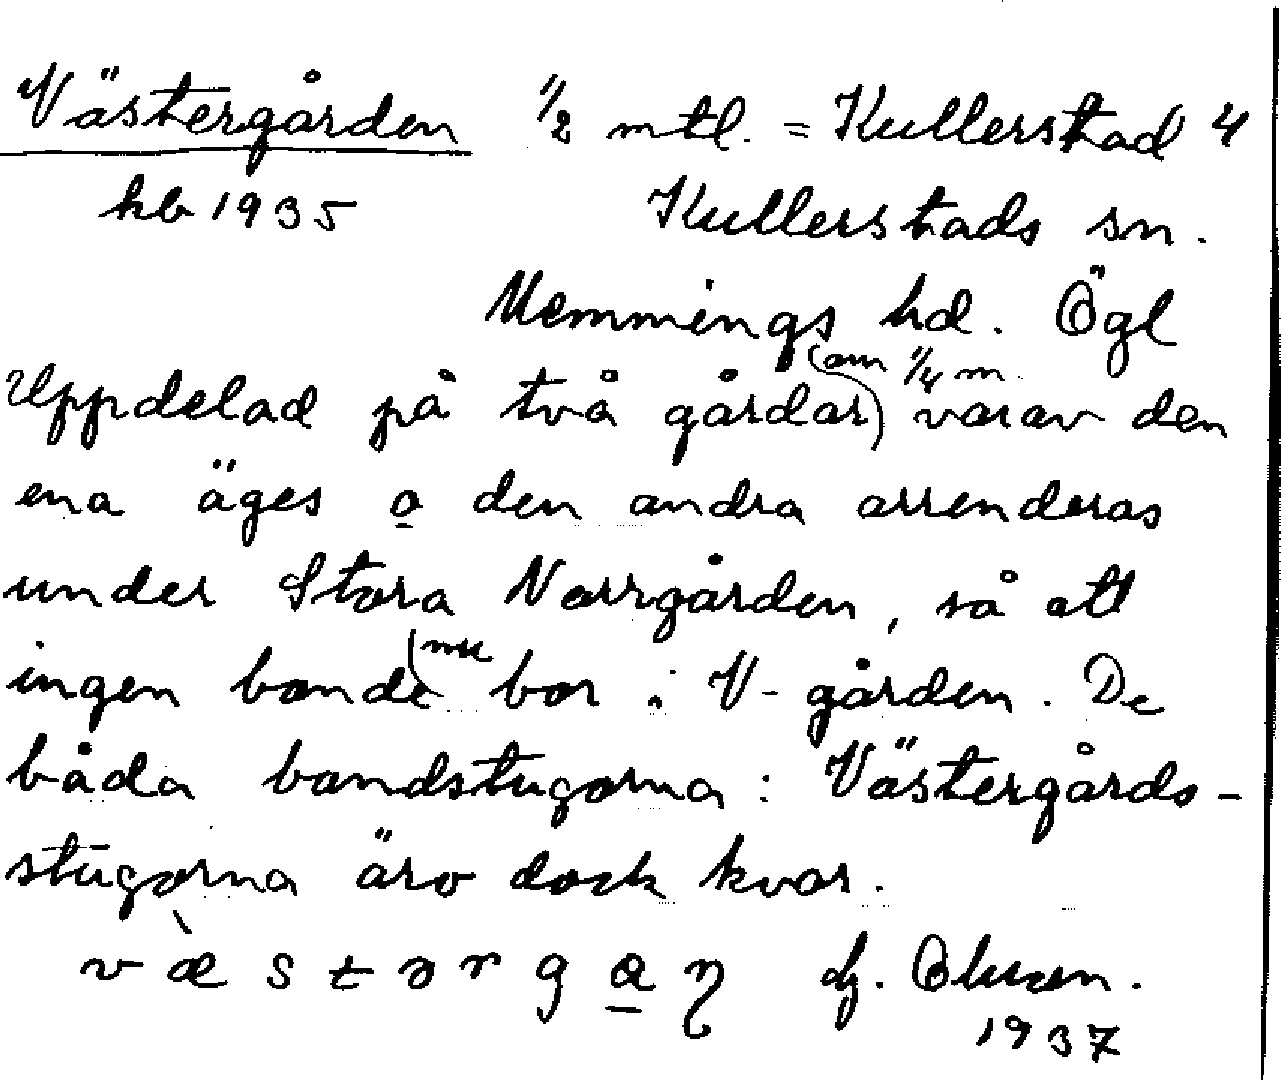 Västergården 1/2 mtl. = Kullerstad 4
hb 1935 Kullerstads sn.
Memmings hd. Ögl
(om 1/4 m.
Uppdelad på två gårdar) varav den
ena äges o den andra arrenderas
under Stora Norrgården, så att
nu
ingen bonde bor i V-gården. De
båda bondstugorna: Västergårds-
stugorna äro dock kvar.
v æ s t ə r g a ŋ
1937